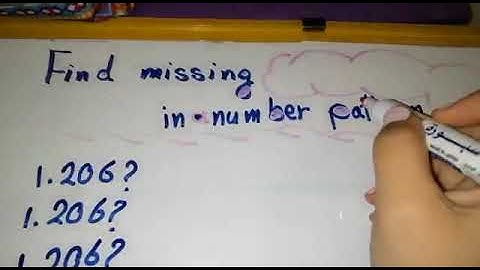 Find missing
in number pa
1.206?
1.206?
1.206?